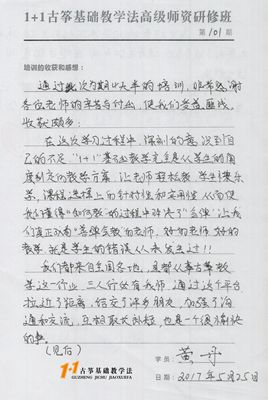 1+1古筝基础教学法高级师资研修班
第101期
培训的收获和感想：
通过此次为期4天半的培训，非常感谢
各位老师的辛苦与付出，使我们受益匪浅，
收获颇多：
在这次学习过程中，深刻的意识到自
己的不足"1+1"基础教学完全是从学生的角
度制定的教学方案，让老师轻松教，学生快乐
学，课程选择上的针对性和实用性，从而使
我们懂得"如何教"的过程中评大了"会弹"，让我
们真正成为"善弹会教"的老师，好的老师好的
教学就是学生的错误从未发生过！！
我们都来自全国各地，且都从事古筝教
学这一行业，三人行必有我师，通过这个平台
拉近了距离，结交了许多朋友，加强了沟
通和交流，互相取长补短，也是一个很愉快
的事。
（见后）
1+1古筝基础教学法
GUZHENG JICHU JIAOXUEFA
学员：黄
日期：2017年5月25日